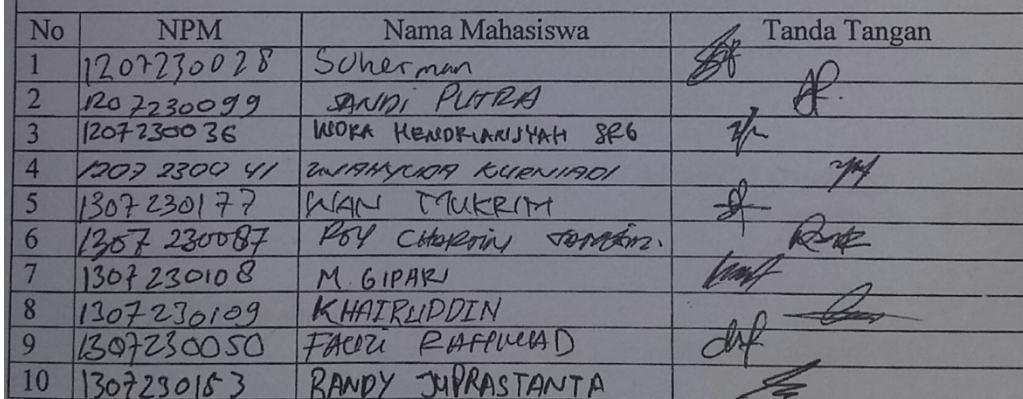 No NPM Nama Mahasiswa Tanda Tangan
1 1207230028 Suherman
2 1207230099 SANDI PUTRA
3 1207230036 HENDRIANSYAH SRG
4 1207230041 KURNIADI
5 1307230177 WAN MUKRIM
6 1307230087 ROY
7 1307230108 M. GIPARI
8 1307230109 KHAIRUDDIN
9 1307230050 FAUZI
10 1307230153 RANDY JUPRASTANTA